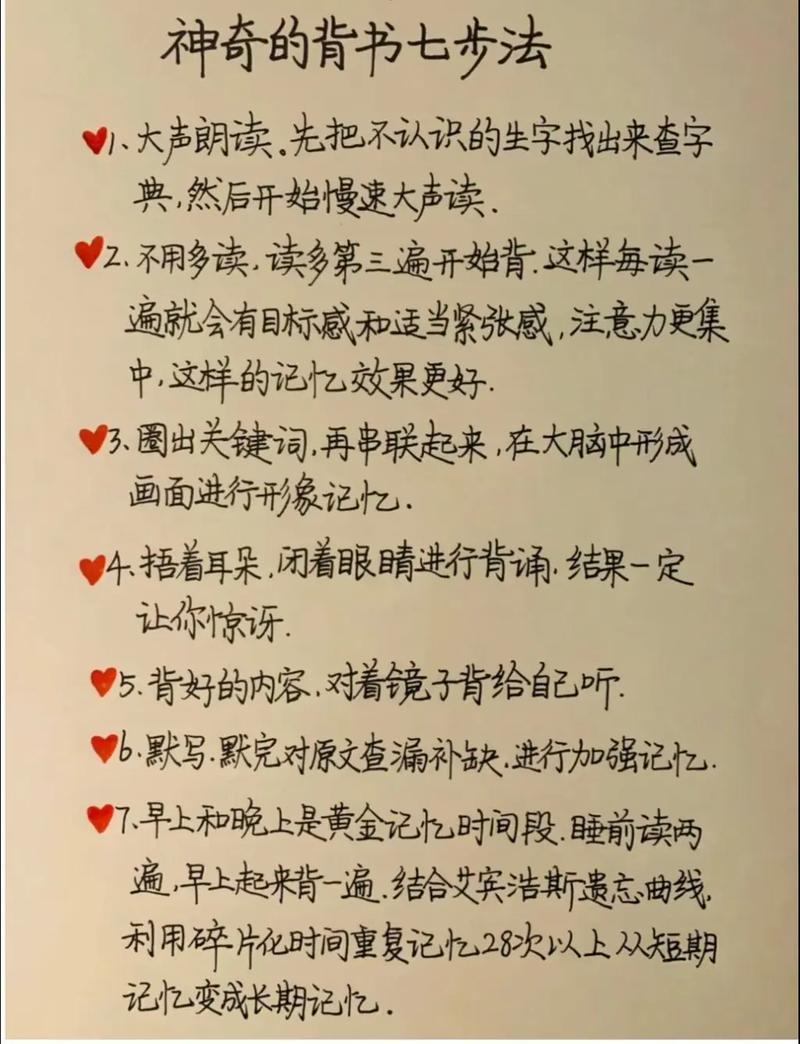 神奇的背书七步法
1、大声朗读。先把不认识的生字找出来查字
典,然后开始慢速大声读.
2、不用多读,读多第三遍开始背.这样每读一
遍就会有目标感和适当紧张感,注意力更集
中,这样的记忆效果更好.
3、圈出关键词,再串联起来,在大脑中形成
画面进行形象记忆.
4、捂着耳朵,闭着眼睛进行背诵.结果一定
让你惊讶.
5.背好的内容,对着镜子背给自己听.
6、默写.默完对原文查漏补缺.进行加强记忆.
7、早上和晚上是黄金记忆时间段.睡前读两
遍,早上起来背一遍.结合艾宾浩斯遗忘曲线,
利用碎片化时间重复记忆28次以上从短期
记忆变成长期记忆.